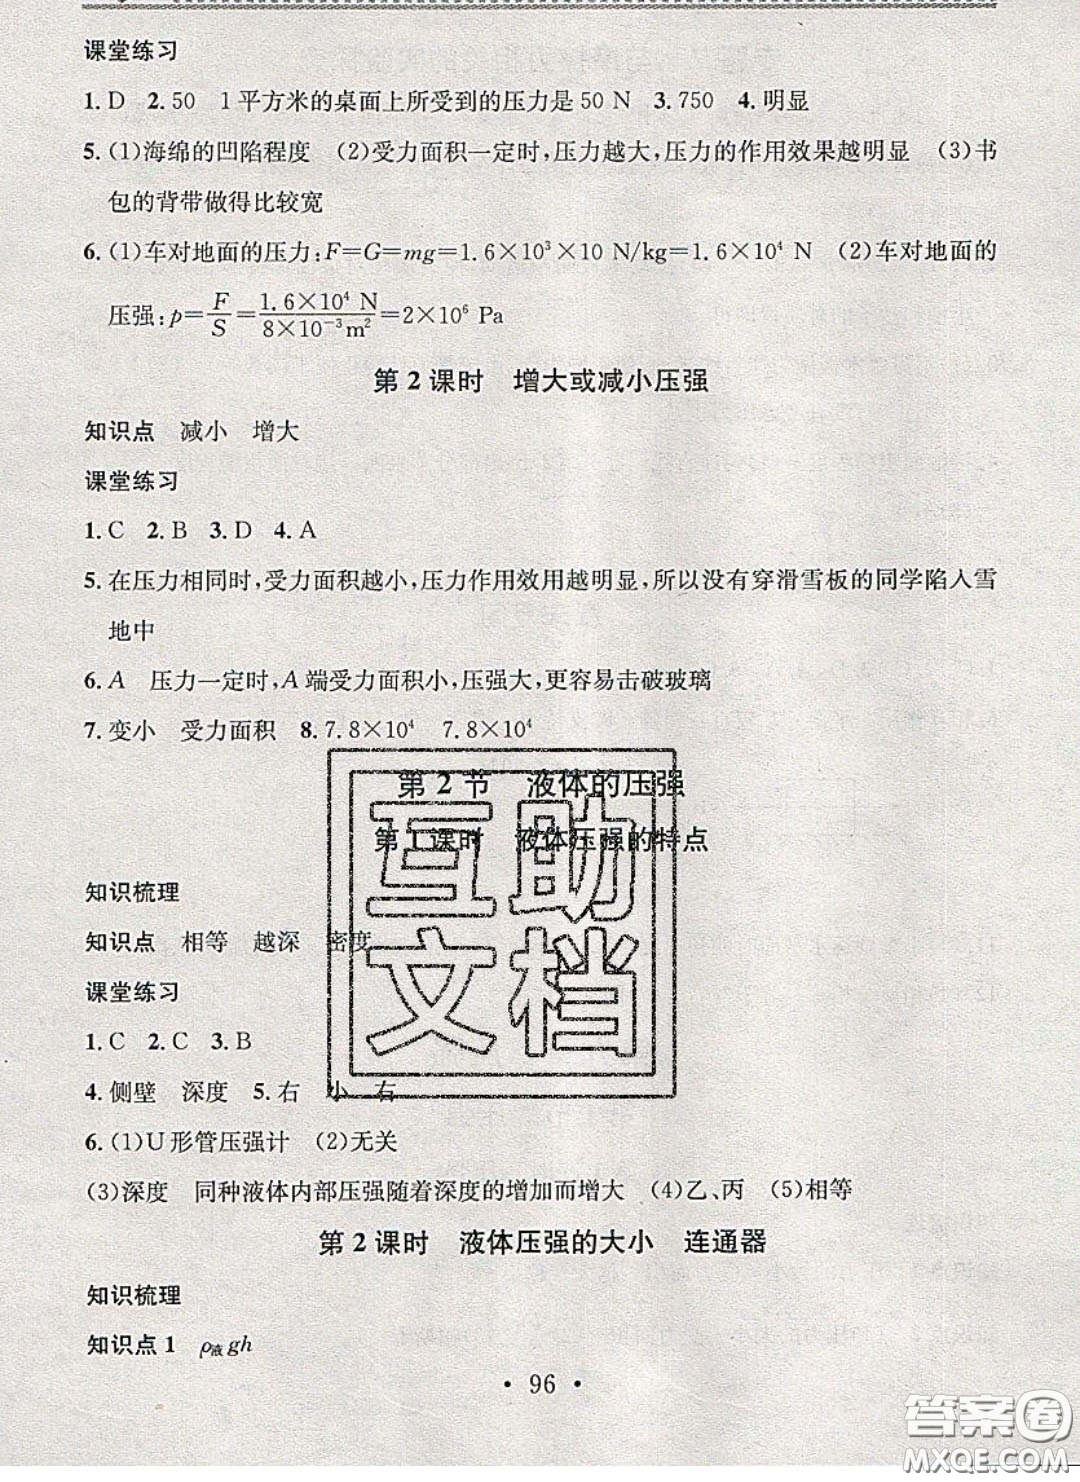 课堂练习
1. D 2. 50 1 平方米的桌面上所受到的压力是 50 N 3. 750 4. 明显
5. (1)海绵的凹陷程度 (2)受力面积一定时,压力越大,压力的作用效果越明显 (3)书
包的背带做得比较宽
6. (1)车对地面的压力:F=G=mg=1.6×10³×10 N/kg=1.6×10⁴ N (2)车对地面的
压强:p=F/S=1.6×10⁴ N/8×10⁻³m²=2×10⁶ Pa
第 2 课时 增大或减小压强
知识点 减小 增大
课堂练习
1. C 2. B 3. D 4. A
5. 在压力相同时,受力面积越小,压力作用效用越明显,所以没有穿滑雪板的同学陷入雪
地中
6. A 压力一定时,A 端受力面积小,压强大,更容易击破玻璃
7. 变小 受力面积 8. 7.8×10⁴ 7.8×10⁴
第 2 节 液体的压强
第 1 课时 液体压强的特点
互助
文档
知识梳理
知识点 相等 越深 密度
课堂练习
1. C 2. C 3. B
4. 侧壁 深度 5. 右 小 右
6. (1)U 形管压强计 (2)无关
(3)深度 同种液体内部压强随着深度的增加而增大 (4)乙、丙 (5)相等
第 2 课时 液体压强的大小 连通器
知识梳理
知识点 1 ρ液gh
· 96 ·
答案圈
MXQE.COM